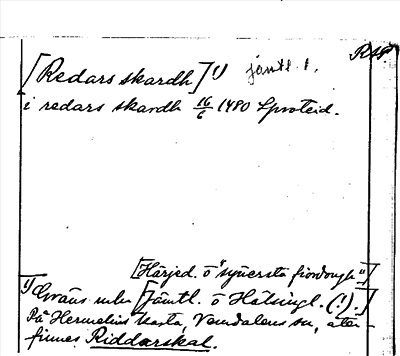 [Redars skardh] 1) jämtl. 1.
i redars skardh 16/6 1480 Sproteid.
[Härjed. o "synersta fiordongh"]
1) Gräns mln [Jämtl. o Hälsingl. (!).]
På Hermelins karta, Vemdalens sn, åter
finnes Riddarskal.